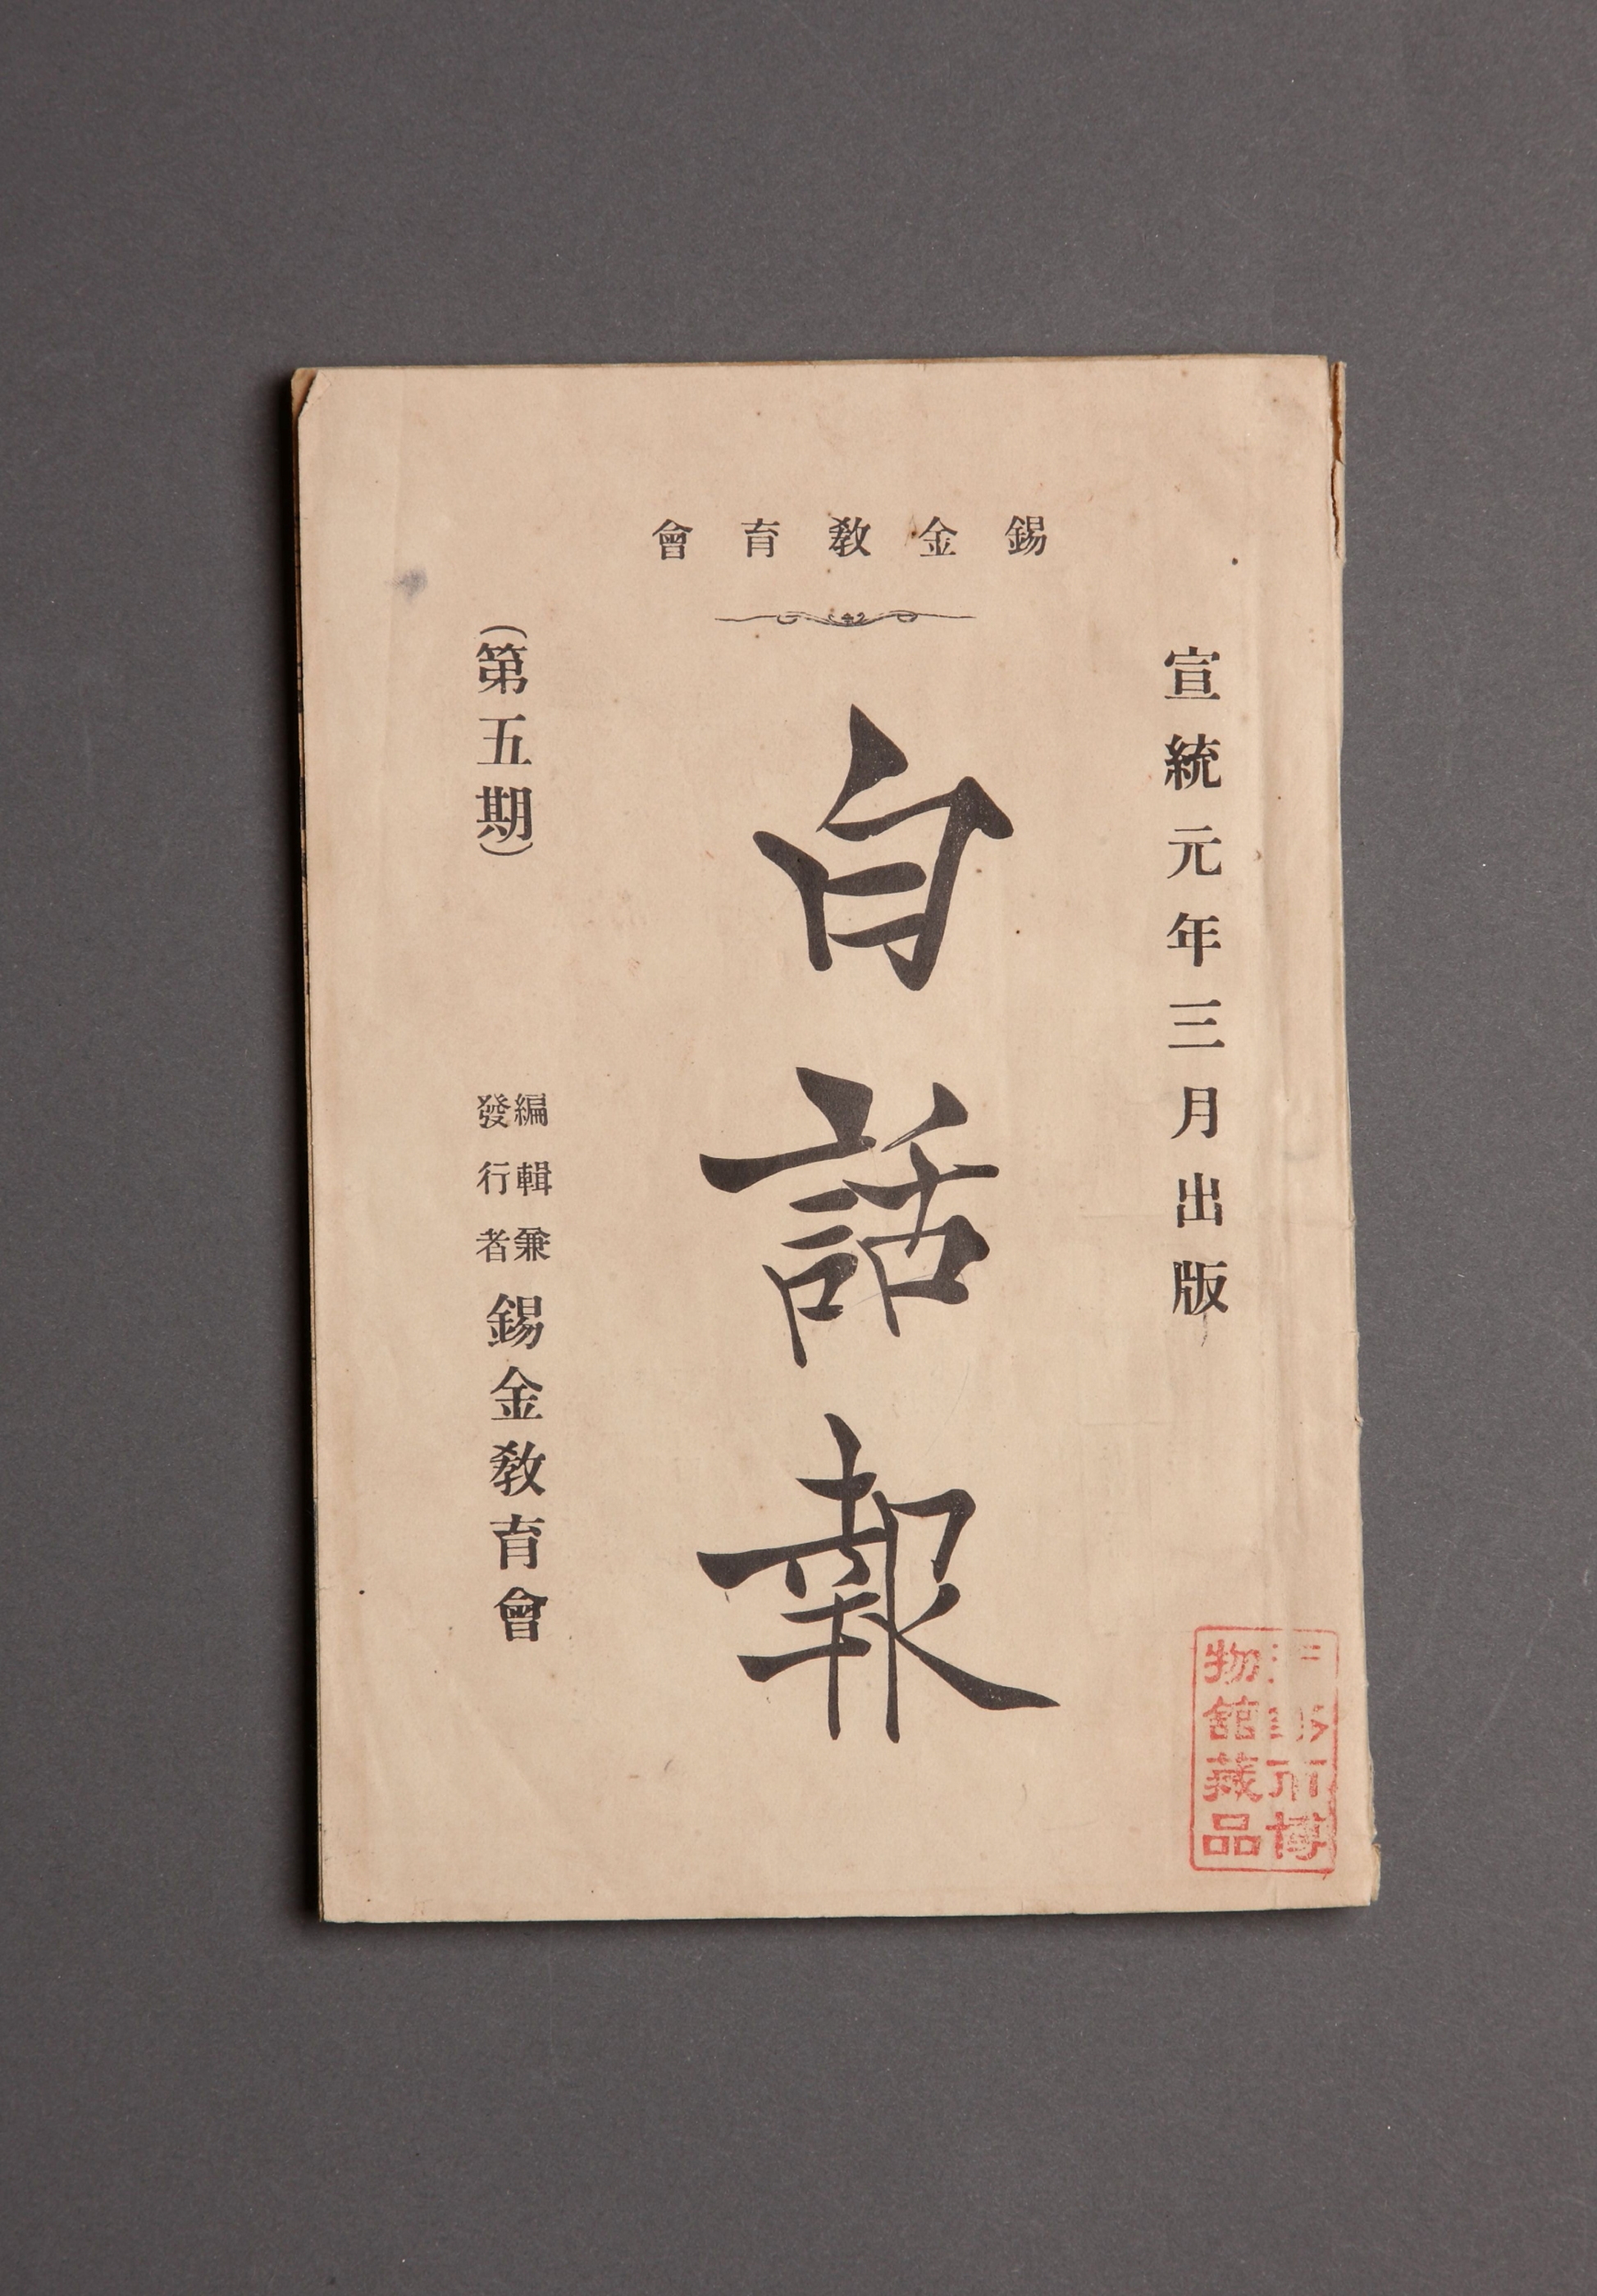 錫金教育會
宣統元年三月出版
白話報
（第五期）
編輯兼
發行者
錫金教育會
市博
物館藏品